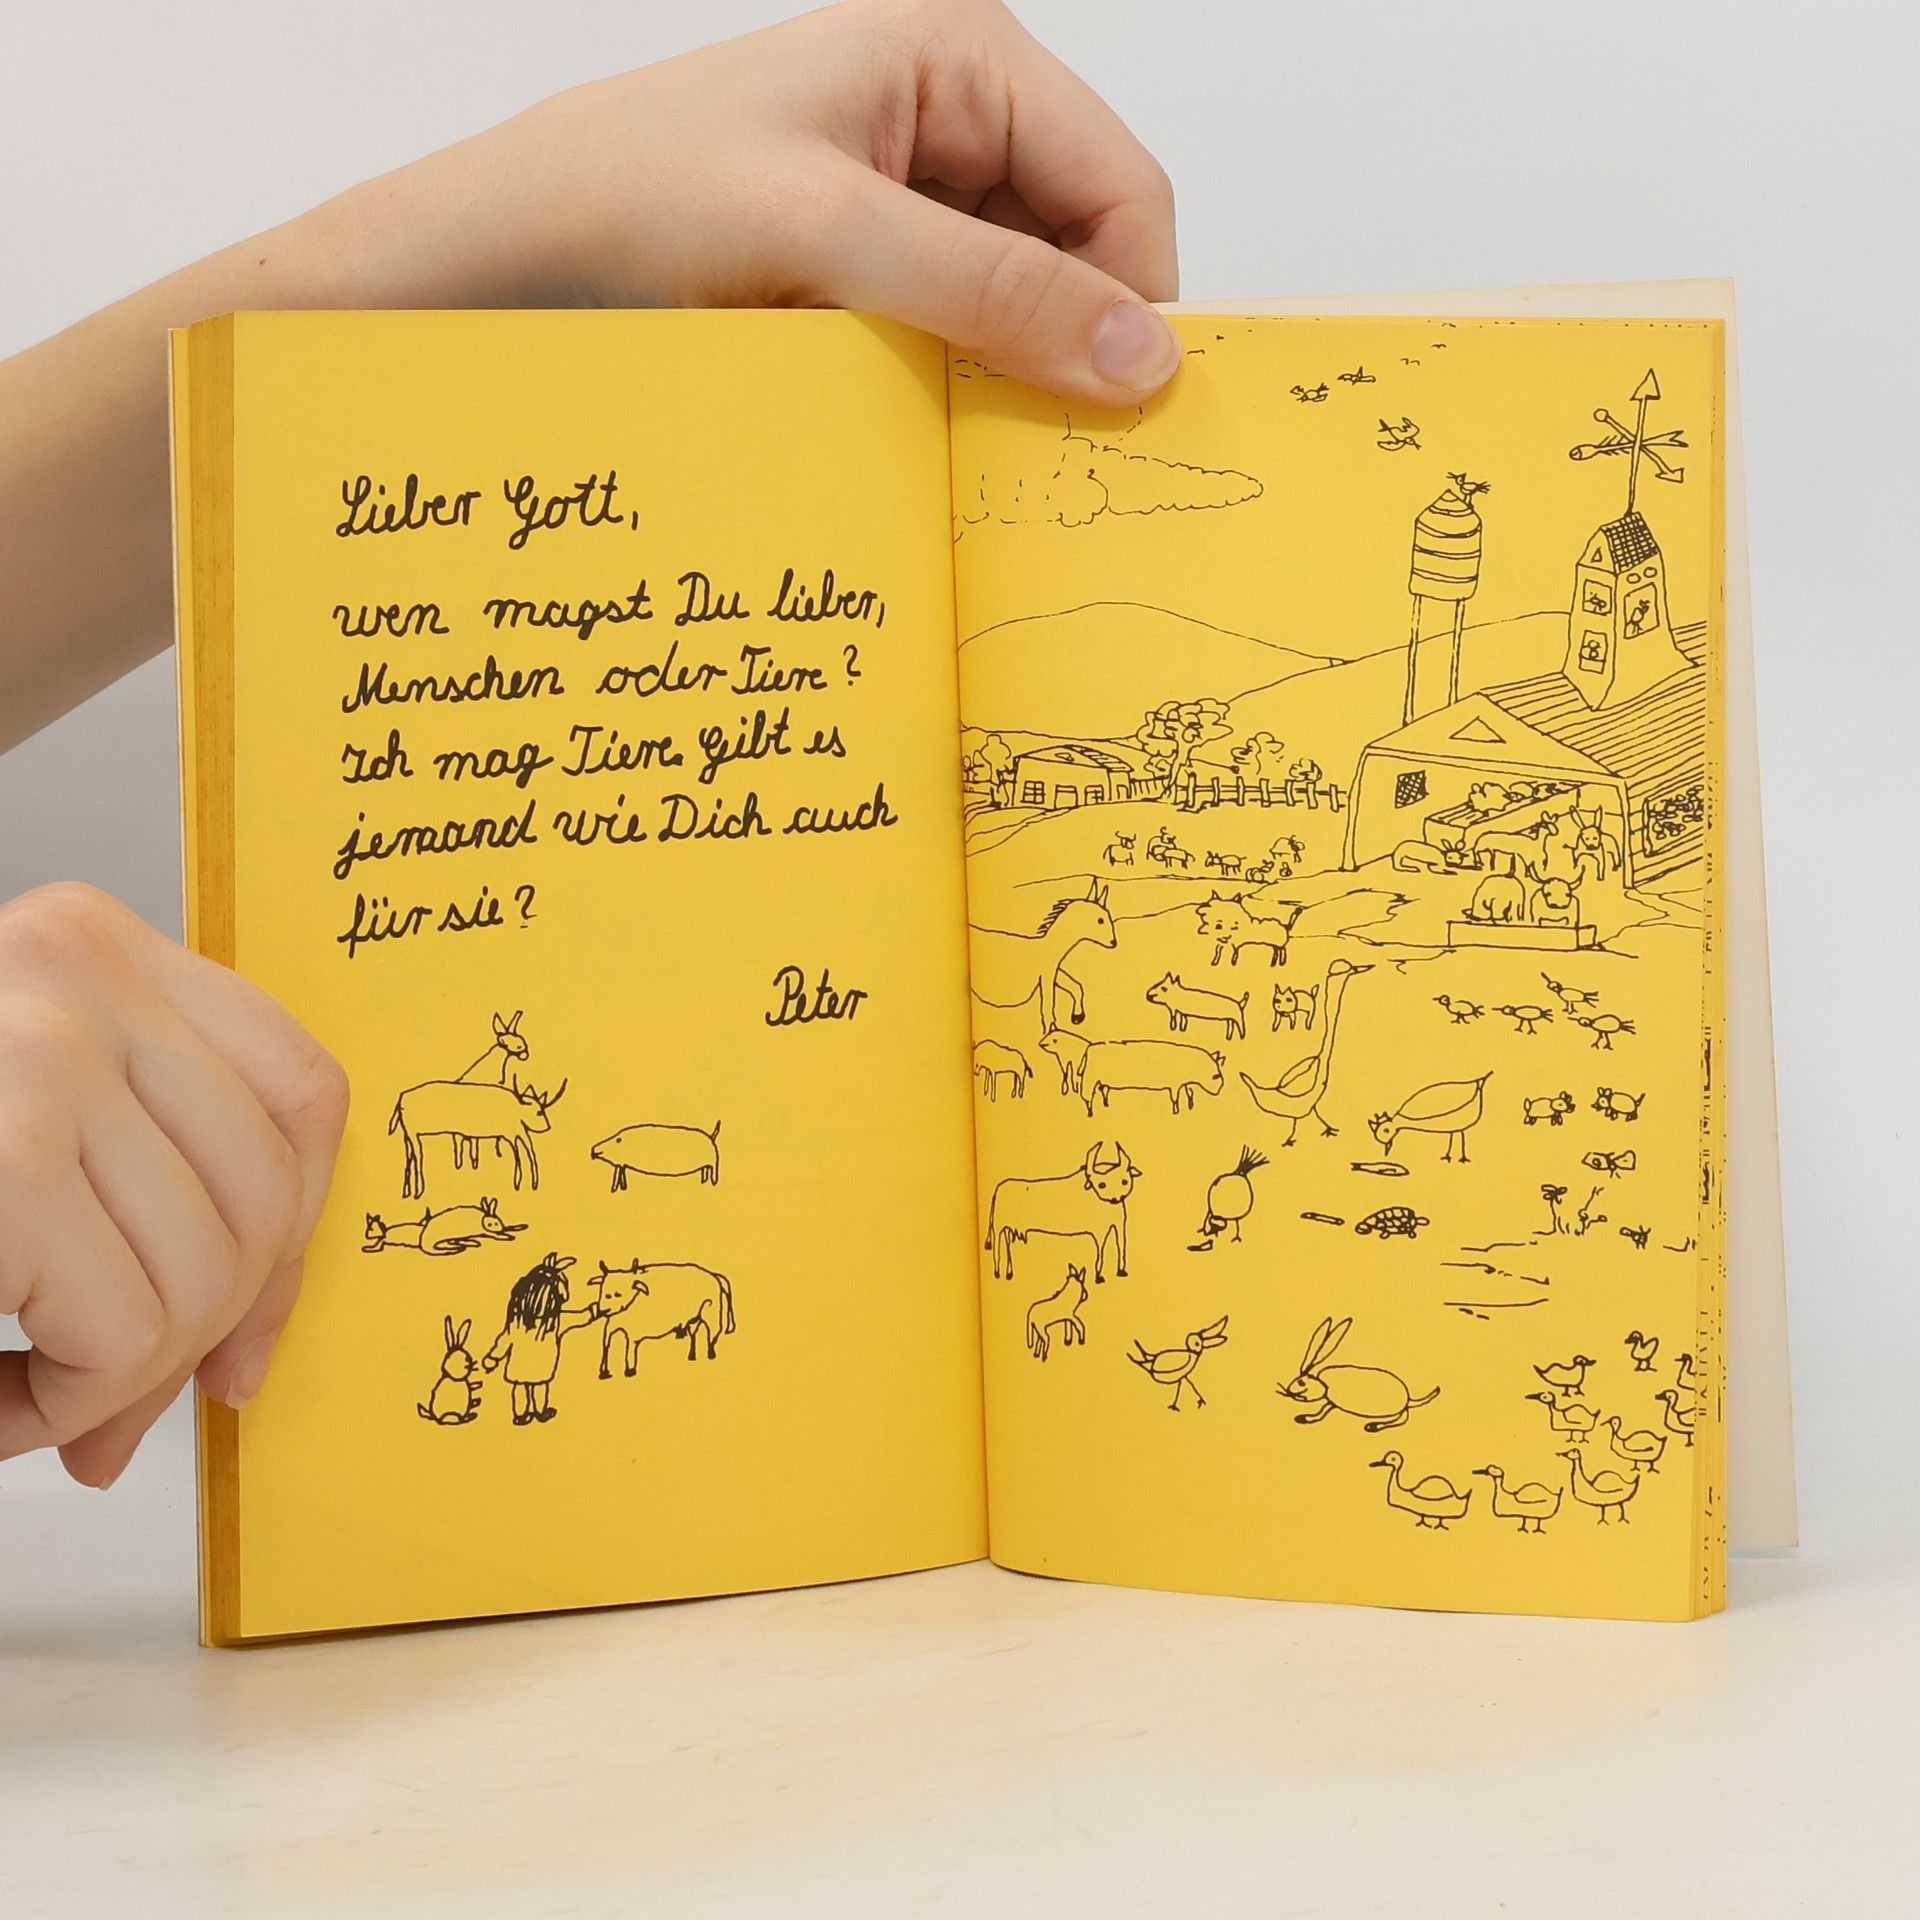 Lieber Gott,
wen magst Du lieber,
Menschen oder Tiere?
Ich mag Tiere. Gibt es
jemand wie Dich auch
für sie?
Peter